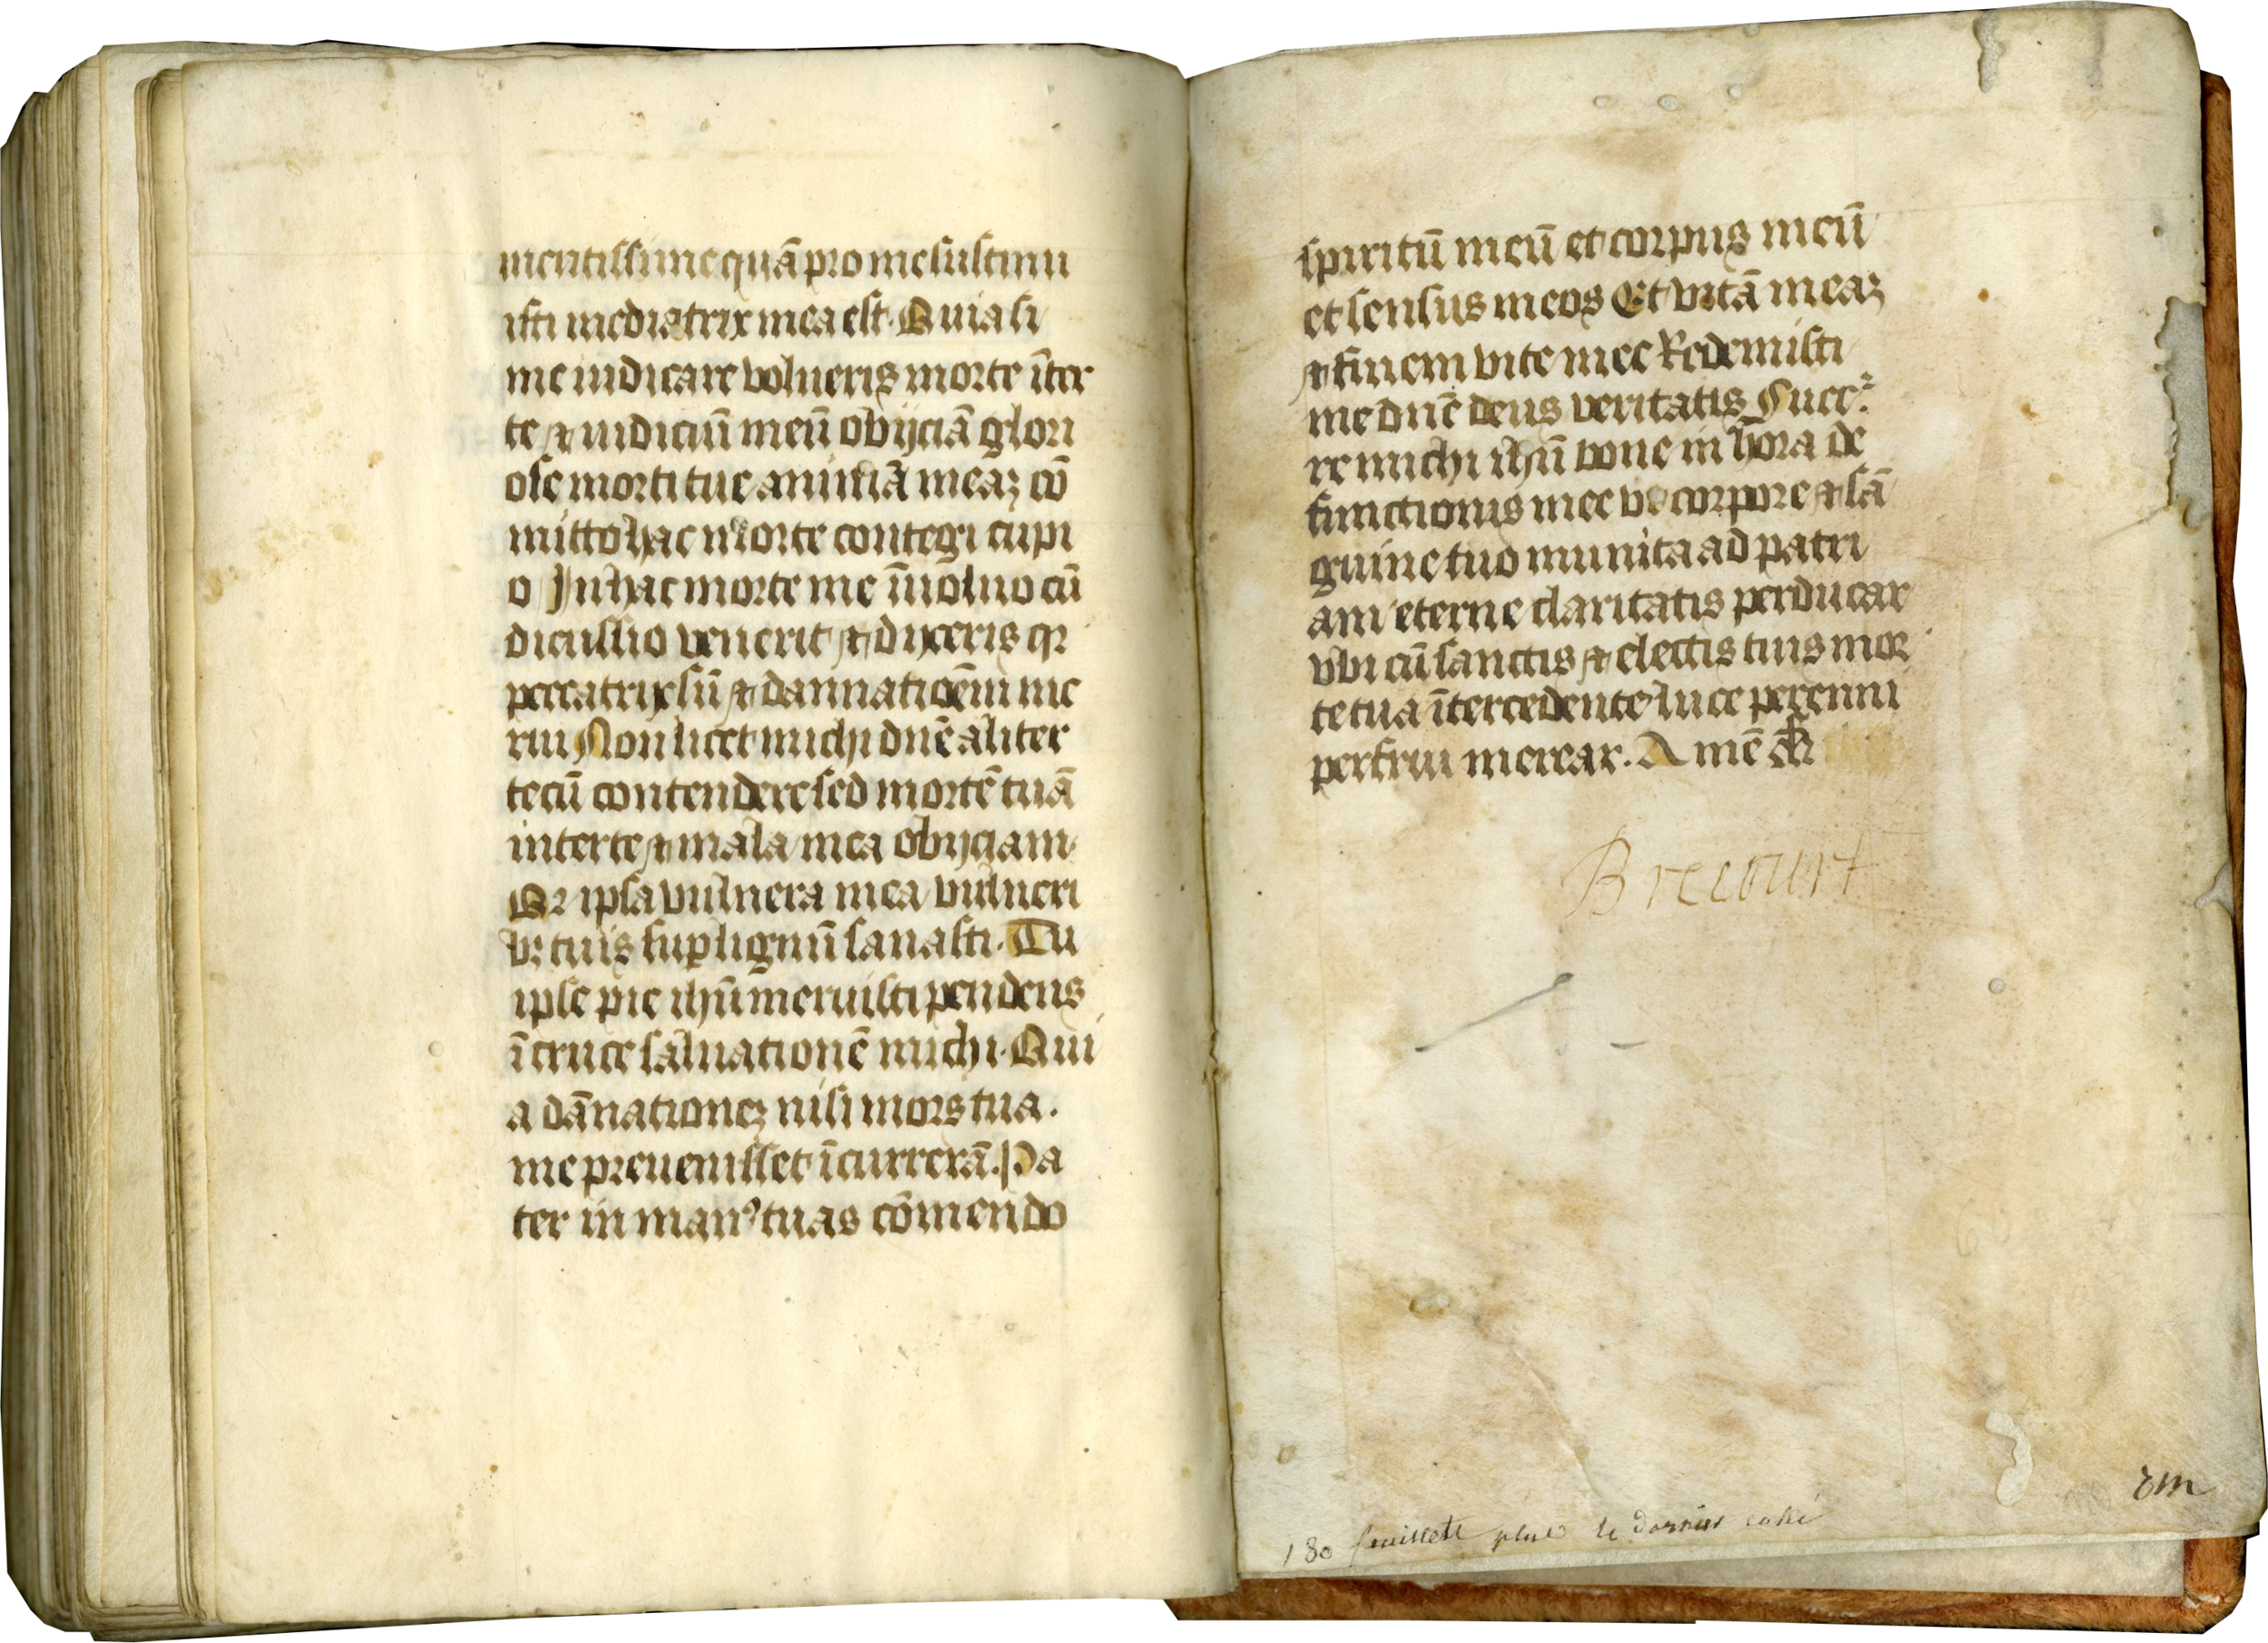 mentissime quā pro me sustinu
isti mediatrix mea est. Quia si
me iudicare volueris morte īter
te ⁊ iudiciū meū obijciā glori
ose morti tue animā meaꝫ cō
mitto hac morte contegi cupi
o In hac morte me īuoluo cū
dicussio venerit ⁊ dixeris qꝛ
peccatrix sū ⁊ dannationēm me
rui Non licet michi dnē aliter
tecū contendere sed mortē tuā
inter te ⁊ mala mea obijciam
Qꝛ ipsa vulnera mea vulneri
bꝫ tuis suꝑ lignū sanasti. Tu
ipse pie ihū meruisti pendens
ī cruce saluationē michi. Qui
a dānationeꝫ nisi mors tua.
me preuenisset īcurrerā. Pa
ter in manꝰ tuas cōmendo
spiritū meū et corpus meū
et sensus meos Et vitā meaꝫ
⁊ finem vite mee Redemisti
me dnē deus veritatis Succ
re michi ihū bone in hora de
functionis mee vt corpore ⁊ sā
guine tuo munita ad patri
am eterne claritatis perducar
vbi cū sanctis ⁊ electis tuis mor
te tua ītercedente luce perenni
perfrui merear. Amē
Brecourt
180 feuillets plus le dernier cahi